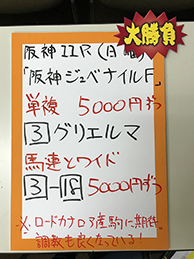 大勝負
阪神11R(日曜)
「阪神ジュベナイルF」
単複 5000円ずつ
3 グリエルマ
馬連とワイド
3-18 5000円ずつ
※ロードカナロア産駒に期待
調教も良くなっている!